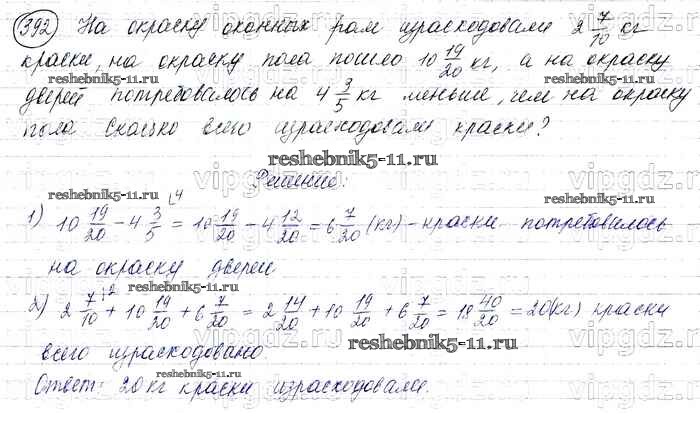 392 На окраску оконных рам израсходовали 2 7/10 кг
краски, на окраску пола пошло 10 19/20 кг, а на окраску
reshebnik5-11.ru reshebnik5-11.ru
дверей потребовалось на 4 3/5 кг меньше, чем на окраску
пола Сколько всего израсходовали краски?
reshebnik5-11.ru
Решение:
reshebnik5-11.ru
1) 10 19/20 - 4 3/5 = 10 19/20 - 4 12/20 = 6 7/20 (кг) - краски потребовалось
на окраску дверей
reshebnik5-11.ru
2) 2 7/10 + 10 19/20 + 6 7/20 = 2 14/20 + 10 19/20 + 6 7/20 = 18 40/20 = 20(кг) краски
всего израсходовано
reshebnik5-11.ru
reshebnik5-11.ru
Ответ: 20 кг краски израсходовали.